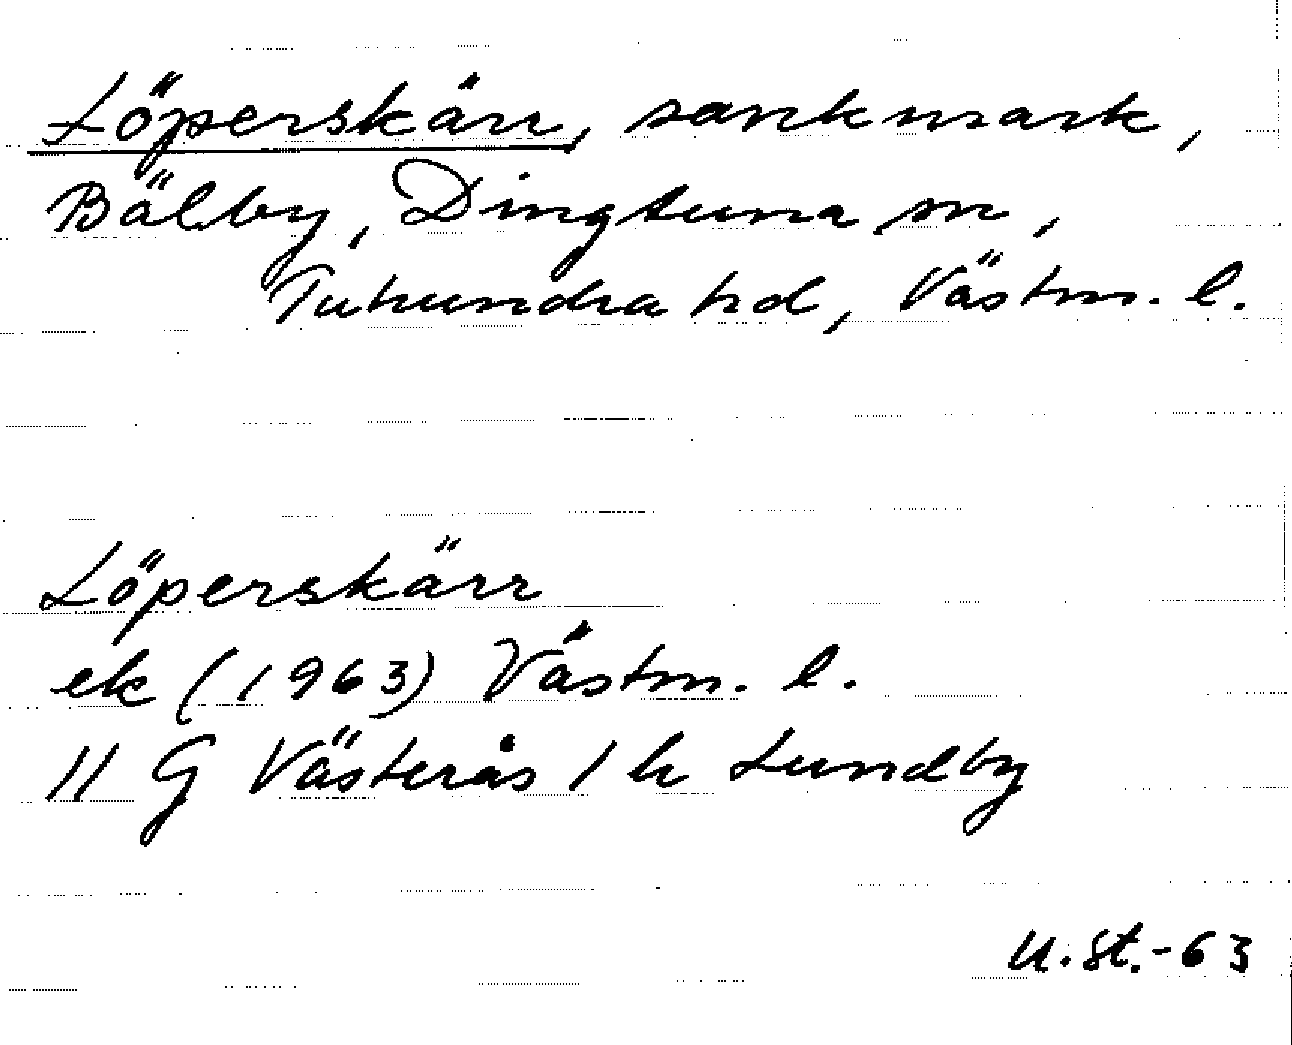 Löperskärr, sankmark,
Bälby, Dingtuna sn,
Tuhundra hd, Västm. l.
Löperskärr
ek (1963) Västm. l.
11 G Västerås 1 h Lundby
U.St.-63